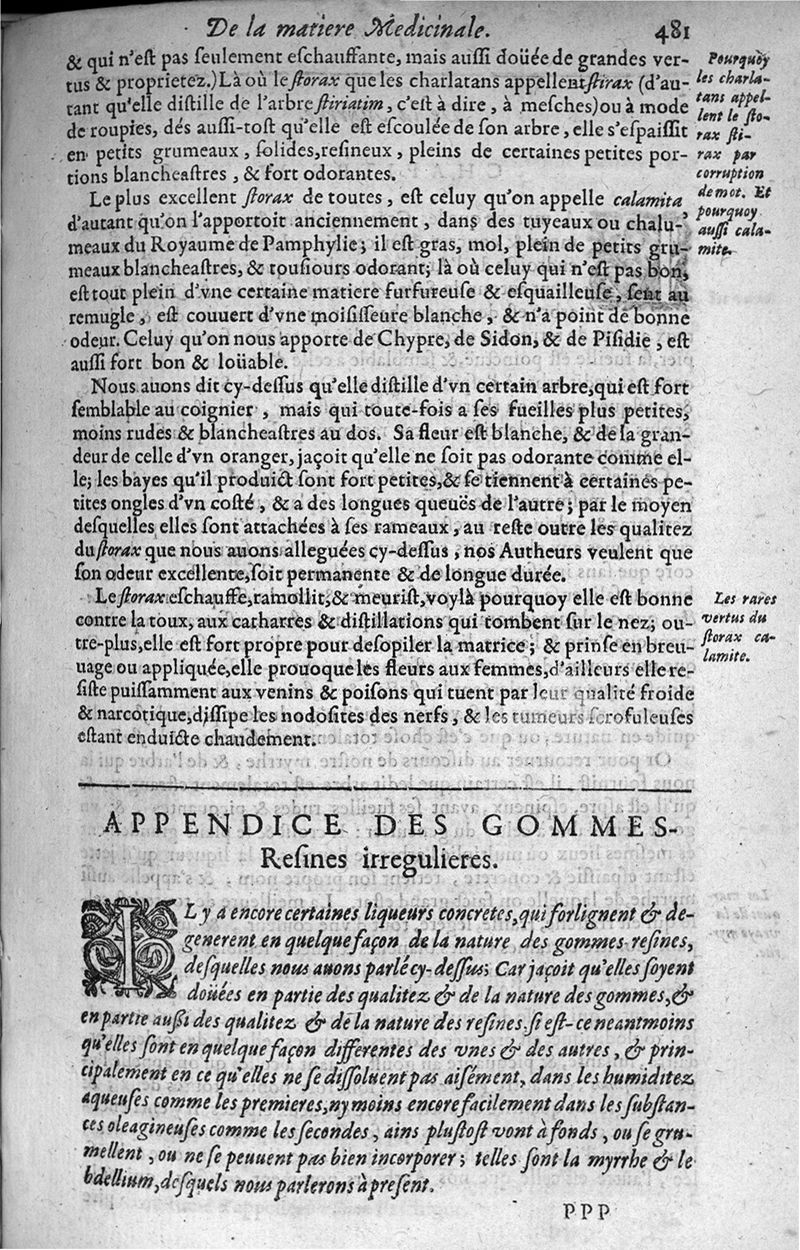 De la matiere Medicinale. 481
& qui n'eſt pas ſeulement eſchauffante, mais auſſi doüée de grandes ver-
tus & proprietez.) Là où le ſtorax que les charlatans appellent ſtirax (d'au-
tant qu'elle diſtille de l'arbre ſtiriatim, c'eſt à dire, à meſches) ou à mode
de roupies, dés auſſi-toſt qu'elle eſt eſcoulée de ſon arbre, elle s'eſpaiſſit
en petits grumeaux, ſolides, reſineux, pleins de certaines petites por-
tions blancheaſtres, & fort odorantes.
Pourquoy
les charla-
tans appel-
lent le ſto-
rax ſti-
rax par
corruption
de mot. Et
pourquoy
auſſi cala-
mite.
Le plus excellent ſtorax de toutes, eſt celuy qu'on appelle calamita
d'autant qu'on l'apportoit anciennement, dans des tuyeaux ou chalu-
meaux du Royaume de Pamphylie; il eſt gras, mol, plein de petits gru-
meaux blancheaſtres, & touſiours odorant; là où celuy qui n'eſt pas bon,
eſt tout plein d'vne certaine matiere furfureuſe & eſquailleuſe, ſent au
remugle, eſt couuert d'vne moiſiſſeure blanche, & n'a point de bonne
odeur. Celuy qu'on nous apporte de Chypre, de Sidon, & de Piſidie, eſt
auſſi fort bon & loüable.
Nous auons dit cy-deſſus qu'elle diſtille d'vn certain arbre, qui eſt fort
ſemblable au coignier, mais qui toute-fois a ſes fueilles plus petites,
moins rudes & blancheaſtres au dos. Sa fleur eſt blanche, & de la gran-
deur de celle d'vn oranger, jaçoit qu'elle ne ſoit pas odorante comme el-
le; les bayes qu'il produict ſont fort petites, & ſe tiennent à certaines pe-
tites ongles d'vn coſté, & a des longues queuës de l'autre; par le moyen
deſquelles elles ſont attachées à ſes rameaux, au reſte outre les qualitez
du ſtorax que nous auons alleguées cy-deſſus, nos Autheurs veulent que
ſon odeur excellente, ſoit permanente & de longue durée.
Le ſtorax eſchauffe, ramollit, & meuriſt, voylà pourquoy elle eſt bonne
contre la toux, aux catharres & diſtillations qui tombent ſur le nez; ou-
tre-plus, elle eſt fort propre pour deſopiler la matrice; & prinſe en breu-
uage ou appliquée, elle prouoque les fleurs aux femmes, d'ailleurs elle re-
ſiſte puiſſamment aux venins & poiſons qui tuent par leur qualité froide
& narcotique, diſſipe les nodoſités des nerfs, & les tumeurs ſcrofuleuſes
eſtant enduicte chaudement.
Les rares
vertus du
ſtorax ca-
lamite.
APPENDICE DES GOMMES-
Reſines irregulieres.
IL y a encore certaines liqueurs concretes, qui forlignent & de-
generent en quelque façon de la nature des gommes-reſines,
deſquelles nous auons parlé cy-deſſus; Car jaçoit qu'elles ſoyent
doüées en partie des qualitez & de la nature des gommes, &
en partie auſſi des qualitez & de la nature des reſines, ſi eſt-ce neantmoins
qu'elles ſont en quelque façon differentes des vnes & des autres, & prin-
cipalement en ce qu'elles ne ſe diſſoluent pas aiſément, dans les humiditez
aqueuſes comme les premieres, ny moins encore facilement dans les ſubſtan-
ces oleagineuſes comme les ſecondes, ains pluſtoſt vont à fonds, ou ſe gru-
mellent, ou ne ſe peuuent pas bien incorporer; telles ſont la myrrhe & le
bdellium, deſquels nous parlerons à preſent.
PPP